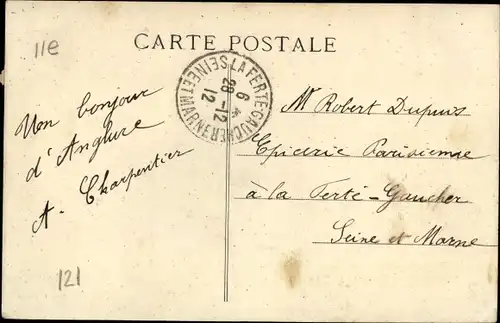 11e
CARTE POSTALE
LA FERTÉ-GAUCHER
SEINE ET MARNE
6
28-12
12
Un bonjour
d'Anglure
A. Charpentier
Mr Robert Dupuis
Epicerie Parisienne
à la Ferté-Gaucher
Seine et Marne
121